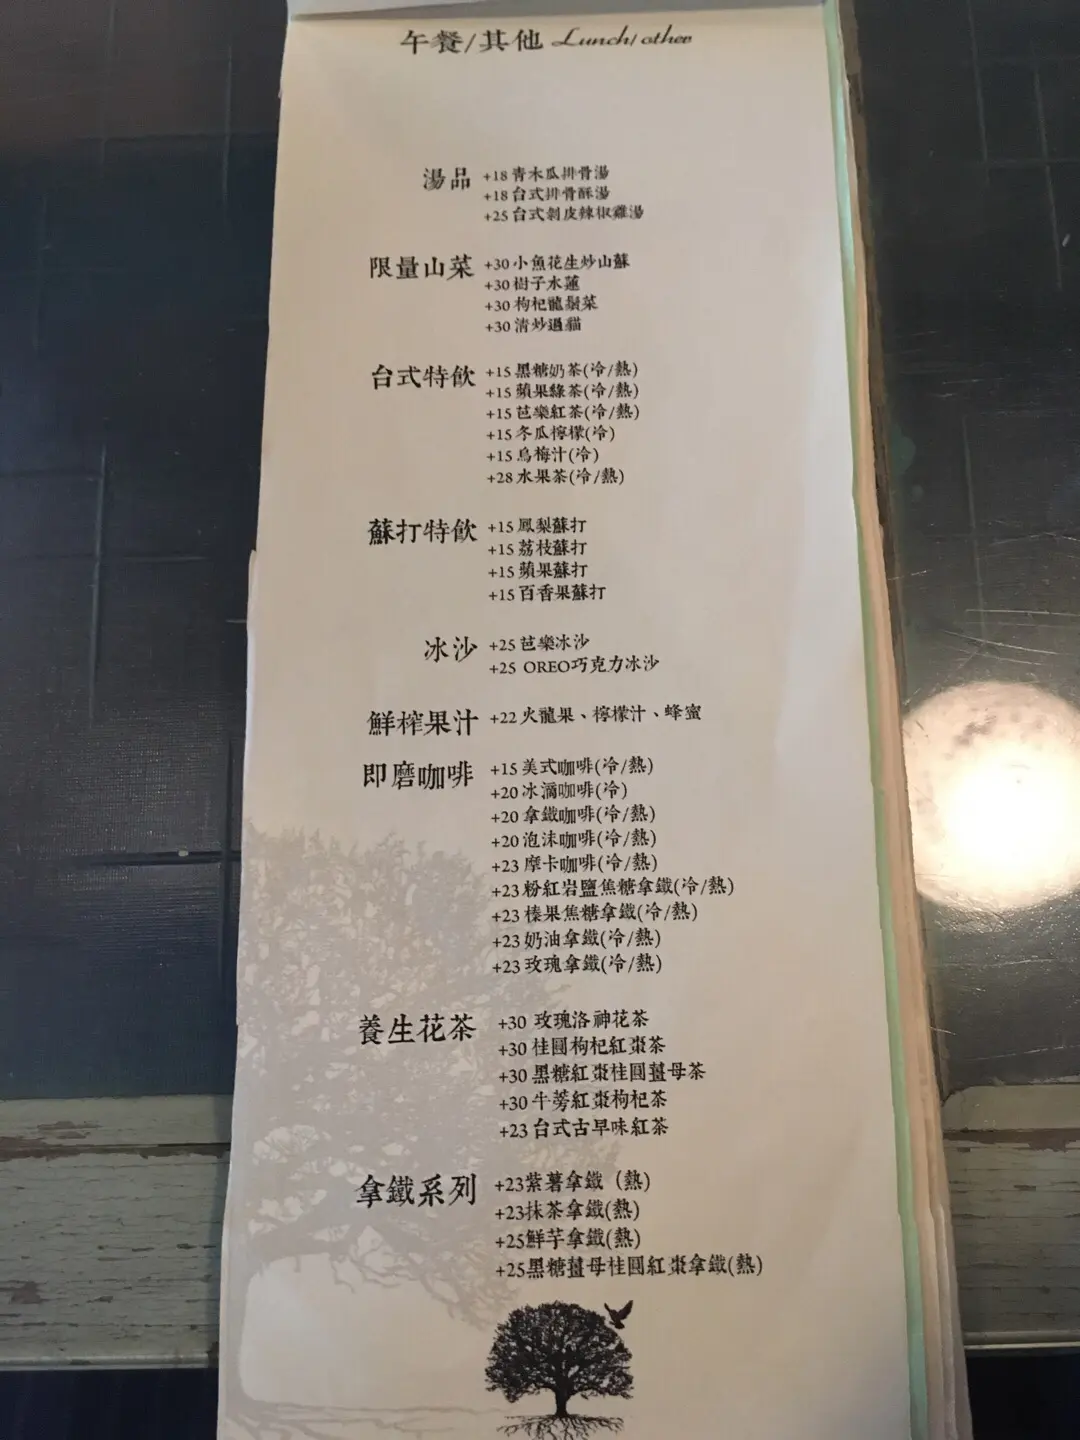 午餐/其他 Lunch/other
湯品 +18 青木瓜排骨湯
+18 台式排骨酥湯
+25 台式剝皮辣椒雞湯
限量山菜 +30 小魚花生炒山蘇
+30 樹子水蓮
+30 枸杞龍鬚菜
+30 清炒過貓
台式特飲 +15 黑糖奶茶(冷/熱)
+15 蘋果綠茶(冷/熱)
+15 芭樂紅茶(冷/熱)
+15 冬瓜檸檬(冷)
+15 烏梅汁(冷)
+28 水果茶(冷/熱)
蘇打特飲 +15 鳳梨蘇打
+15 荔枝蘇打
+15 蘋果蘇打
+15 百香果蘇打
冰沙 +25 芭樂冰沙
+25 OREO巧克力冰沙
鮮榨果汁 +22 火龍果、檸檬汁、蜂蜜
即磨咖啡 +15 美式咖啡(冷/熱)
+20 冰滴咖啡(冷)
+20 拿鐵咖啡(冷/熱)
+20 泡沫咖啡(冷/熱)
+23 摩卡咖啡(冷/熱)
+23 粉紅岩鹽焦糖拿鐵(冷/熱)
+23 榛果焦糖拿鐵(冷/熱)
+23 奶油拿鐵(冷/熱)
+23 玫瑰拿鐵(冷/熱)
養生花茶 +30 玫瑰洛神花茶
+30 桂圓枸杞紅棗茶
+30 黑糖紅棗桂圓薑母茶
+30 牛蒡紅棗枸杞茶
+23 台式古早味紅茶
拿鐵系列 +23紫薯拿鐵（熱)
+23抹茶拿鐵(熱)
+25鮮芋拿鐵(熱)
+25黑糖薑母桂圓紅棗拿鐵(熱)